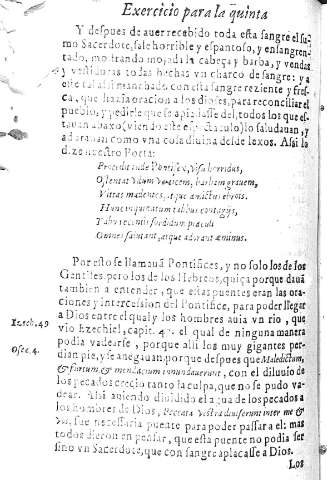 Exercicio para la quinta
Y despues de auer recebido toda esta sangre el su
mo Sacerdote, sale horrible y espantoso, y ensangren
tado, mostrando mojada la cabeça y barba, y vendas
y vestiduras todas hechas vn charco de sangre: y a
este tal assi manchado con esta sangre reziente y fres
ca, que hazia oracion a los dioses, para reconciliar el
pueblo, y pedirle que se apiadasse del, todos los que es
tauan abaxo (viendo este espectaculo) lo saludauan, y
adorauan como vna cosa diuina desde lexos. Assi lo
dize nuestro Poeta:
Procedit inde Pontifex, visu horridus,
Ostentat vdum verticem, barbam grauem,
Vittas madentes, atque amictus ebrios.
Hunc inquinatum talibus contagijs,
Tabo recentis sordidum piaculi
Omnes salutant, atque adorant eminus.
Por esto se llamauã Pontifices, y no solo los de los
Gentiles, pero los de los Hebreos, quiça porque dauã
tambien a entender, que estas puentes eran las ora
ciones y intercession del Pontifice, para poder llegar
a Dios entre el qual y los hombres auia vn rio, que
Ezech. 49
vio Ezechiel, capit. 4 . el qual de ninguna manera
podia vadearse, porque alli los muy gigantes per-
Osee. 4.
dian pie, y se anegauan, por que despues que Maledictum,
& furtum & mendacium inundauerunt, con el diluuio de
los pecados crecio tanto la culpa, que no se pudo va-
dear. Assi auiendo diuidido el agua de los pecados a
los hombres de Dios, Peccata vestra diuiserunt inter me &
vos, fue necessaria puente para poder passar a el: mas
todos dieron en pensar, que esta puente no podia ser
sino vn Sacerdote, que con sangre aplacasse a Dios.
Los